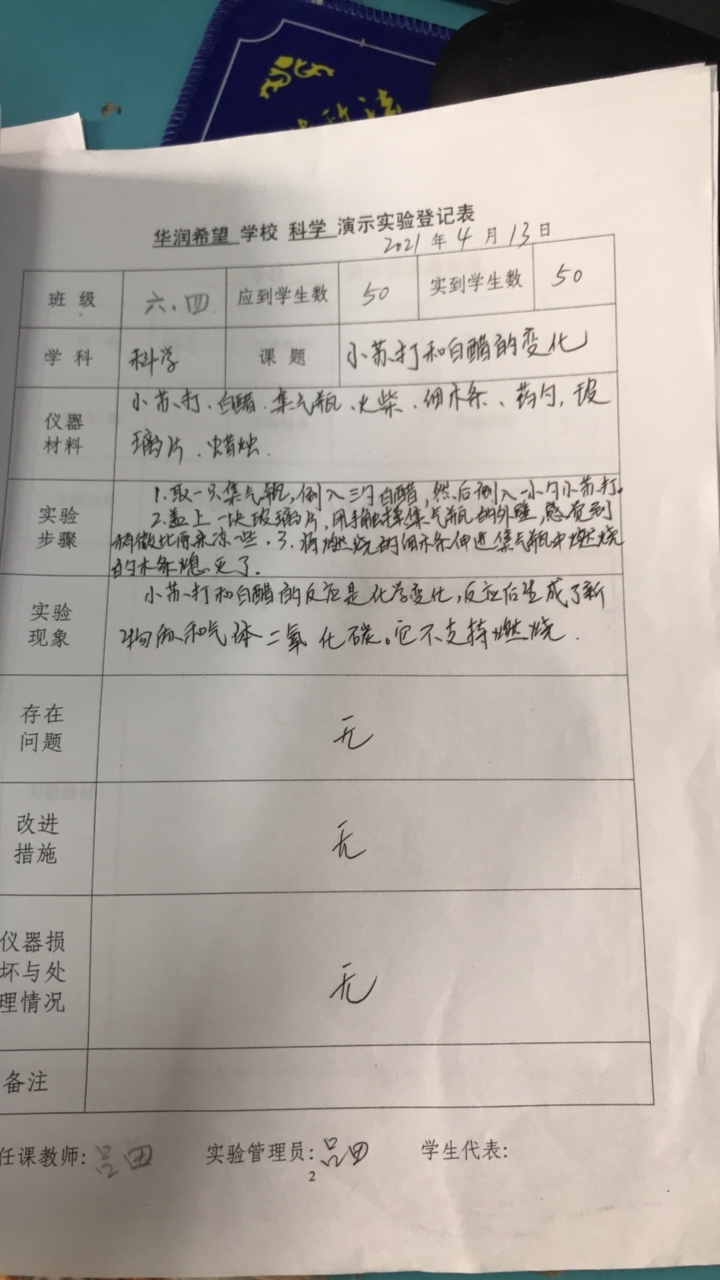 华润希望 学校 科学 演示实验登记表
2021 年 4 月 13 日
班 级 六.四 应到学生数 50 实到学生数 50
学 科 科学 课 题 小苏打和白醋的变化
仪器材料 小苏打、白醋、集气瓶、火柴、细木条、药勺、玻
璃片、蜡烛.
实验步骤 1.取一只集气瓶,倒入三勺白醋,然后倒入一小勺小苏打。
2.盖上一块玻璃片,用手触摸集气瓶的外壁,感觉到
稍微比原来凉一些.3.将燃烧的细木条伸进集气瓶中燃烧
的木条熄灭了.
实验现象 小苏打和白醋的反应是化学变化,反应后生成了新
物质和气体二氧化碳。它不支持燃烧.
存在问题 无
改进措施 无
仪器损坏与处理情况 无
备注
任课教师: 吕田 实验管理员: 吕田 学生代表:
2